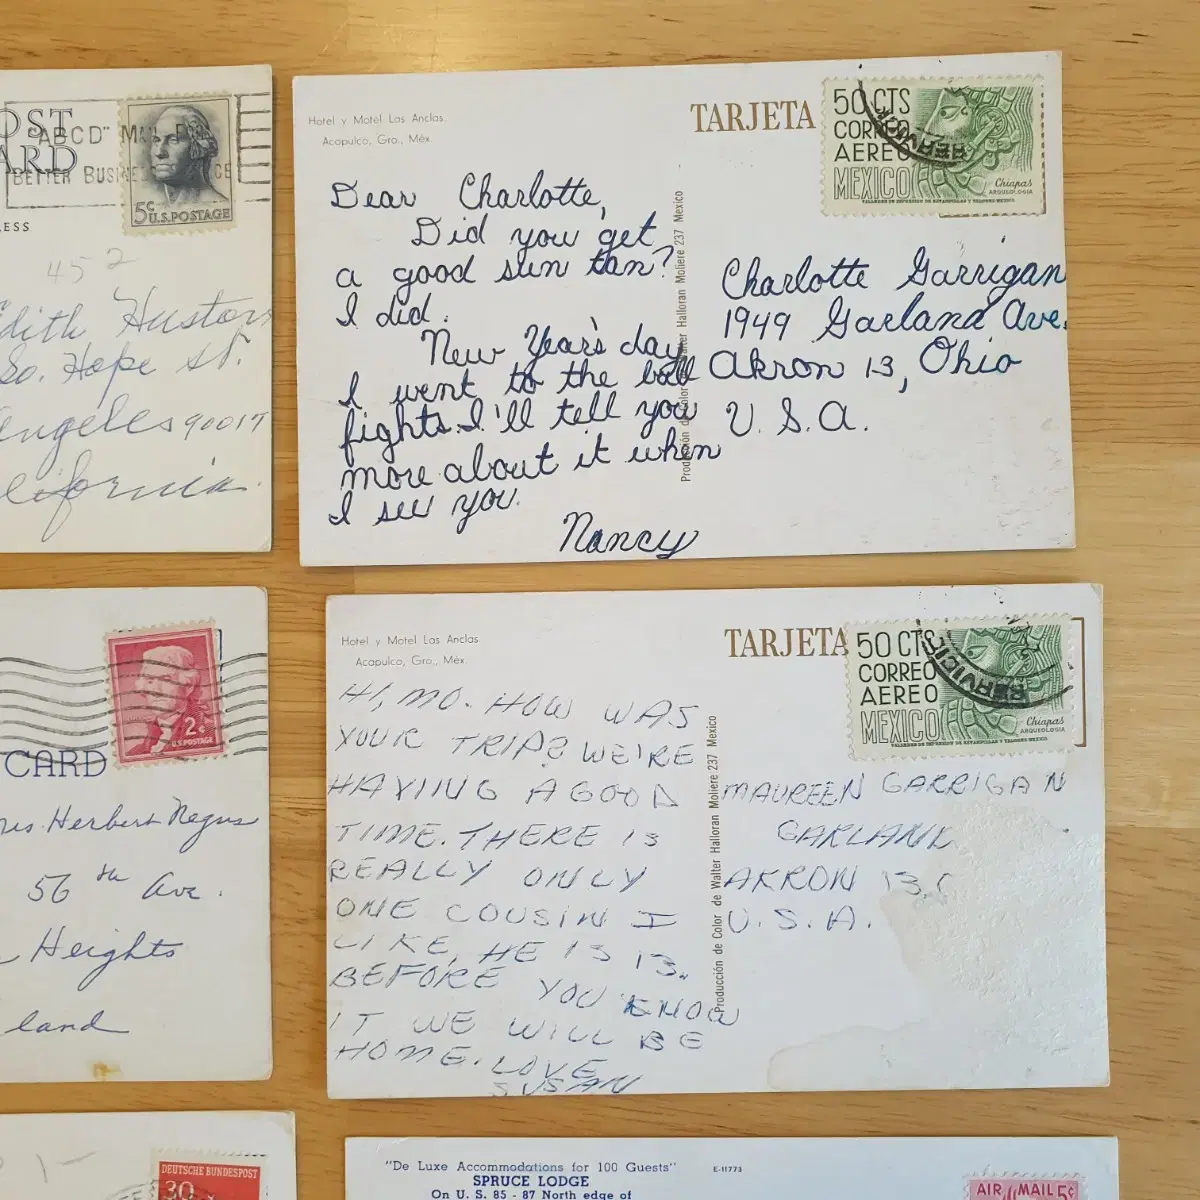 OST
ARD
"ABCD" MAIL FOR
BETTER BUSINESS
CE
5¢
U.S.POSTAGE
ESS
452
dith Huston
So. Hope St.
Angeles 90017
lifornia.
Hotel y Motel Las Anclas.
Acapulco, Gro., Méx.
TARJETA
50 CTS
CORREO
AEREO
MEXICO
Chiapas
ARQUEOLOGIA
TALLERES DE IMPRESION DE ESTAMPILLAS Y VALORES-MEXICO
SERVICIO
Dear Charlotte,
Did you get
a good sun tan?
I did.
New Year's day
I went to the bull
fights. I'll tell you
more about it when
I see you.
Nancy
Producción de Color de Walter Halloran Moliere 237 Mexico
Charlotte Garrigan
1949 Garland Ave.
Akron 13, Ohio
U. S. A.
2¢
U.S. POSTAGE
CARD
Mrs. Herbert Negus
56th Ave.
Heights
land
Hotel y Motel Las Anclas.
Acapulco, Gro., Méx.
TARJETA
50 CTS
CORREO
AEREO
MEXICO
Chiapas
ARQUEOLOGIA
TALLERES DE IMPRESION DE ESTAMPILLAS Y VALORES-MEXICO
SERVICIO
HI, MO. HOW WAS
YOUR TRIP? WE'RE
HAVING A GOOD
TIME. THERE IS
REALLY ONLY
ONE COUSIN I
LIKE, HE IS 13.
BEFORE YOU KNOW
IT WE WILL BE
HOME. LOVE
SUSAN
Producción de Color de Walter Halloran Moliere 237 Mexico
MAUREEN GARRIGAN
GARLAND
AKRON 13,
U. S. A.
1-
DEUTSCHE BUNDESPOST
30
"De Luxe Accommodations for 100 Guests"
E-11773
SPRUCE LODGE
On U. S. 85 - 87 North edge of
AIR MAIL 5¢